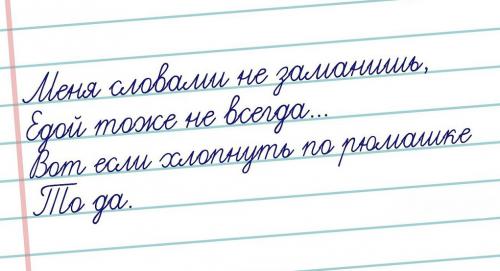 Меня словами не заманишь,
Едой тоже не всегда...
Вот если хлопнуть по рюмашке
То да.